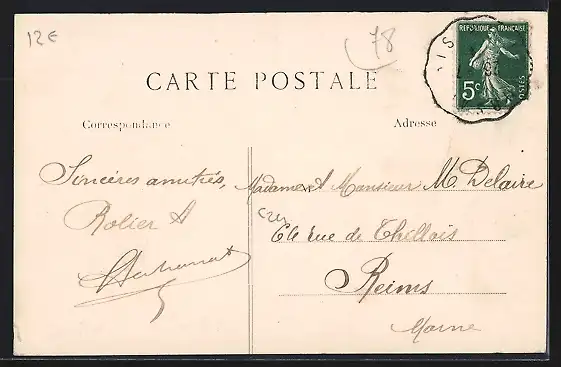 12€
78
REPUBLIQUE FRANÇAISE
5c
POSTES
CARTE POSTALE
Correspondance
Adresse
Sincères amitiés,
Madame et Monsieur M. Delaire
64 rue de Thillois
Reims
Marne